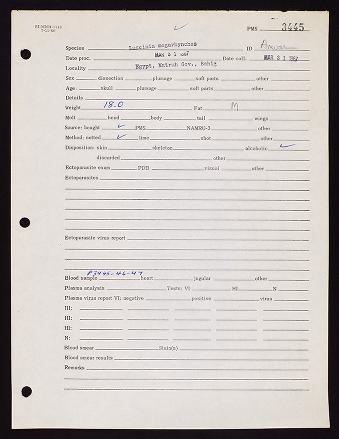 PMS 3445
Species Luscinia megarhynchos ID
Date proc. MAR 31 1967 Date coll. MAR 31 1967
Locality Egypt, Matruh Gov., Bahig
Sex dissection plumage soft parts other
Age skull plumage soft parts other
Details
Weight 18.0 Fat M
Molt head body tail wings
Source: bought ✓ PMS NAMRU-3 other
Method: netted ✓ lime shot other
Disposition: skin skeleton alcoholic ✓
discarded other
Ectoparasite exam PDB visual other
Ectoparasites
Ectoparasite virus report
P3445-46-47
Blood sample heart jugular other
Plasma analysis Tests: VI HI N
Plasma virus report VI: negative positive virus
HI:
HI:
HI:
N:
Blood smear Stain(s)
Blood smear results
Remarks